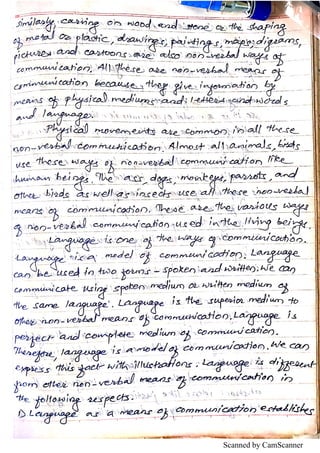 Similarly, carving on wood and stone or the shaping
of metal or plastic, drawings, paintings, maps, digrams,
pictures and cartoons are also non-verbal ways of
communication. All these are non-verbal means of
communication because they give information by
means of physical mediums and letters and words
and language.
Physical movements are common in all these
non-verbal communication. Almost all animals, birds
use these ways of non-verbal communication like
human beings. The ass dogs, monkeys, parrots, and
other birds as well as insects use all these non-verbal
means of communication. These are the various ways
of non-verbal communication used in the living beings
Language is one of the ways of communication.
Language is a model of communication. Language
can be used in two forms - spoken and written. We can
communicate using spoken medium or written medium of
the same language. Language is the superior medium to
other non-verbal means of communication. Language is
perfect and complete medium of communication.
Therefore, language is a model of communication. We can
express this fact with illustrations. Language is different
from other non-verbal means of communication in
the following respects.
1) Language as a means of communication establishes
Scanned by CamScanner